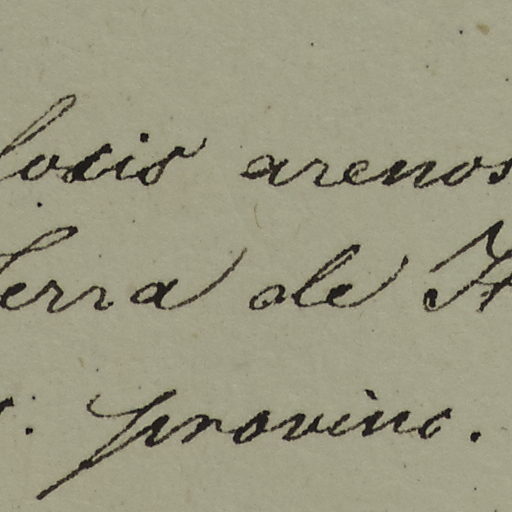 locis arenos
Serra de
provinc.